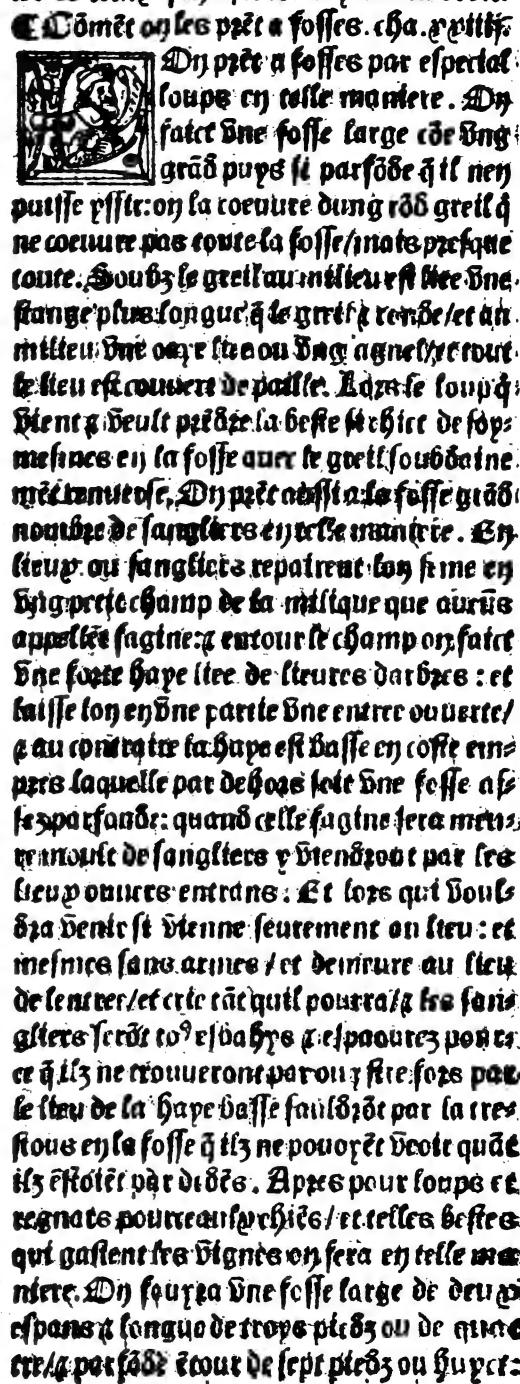 ¶ Cõmẽt on les prẽt a fosses. cha. xxiiij.
On prẽt a fosses par especial
loups en telle maniere. On
faict vne fosse large cõe vng
grãd puys si parfõde q̃ il nen
puisse yssir: on la coeuure dung rõd greil q̃
ne coeuure pas toute la fosse/mais presque
toute. Soubz le greil au milieu est liee vne
stange plus longue q̃ le greil a ronde/et au
millieu vne oaye liee ou vng agnel/et tout
le lieu est couuert de paille. Lors le loup q̃
vient a veult prẽdre la beste si chiet de soy-
mesmes en la fosse auec le greil soubdaine
mẽt renuerse. On prẽt aussi a la fosse grãd
nombre de sangliers en telle maniere. En
lieux ou sangliers repairent lon seme en
vng petit champ de la milique que aucũs
appellẽt sagine: a entour le champ on faict
vne forte haye liee de lieures darbres: et
laisse lon en vne partie vne entree ouuerte/
a au contraire la haye est basse en coste em-
pres laquelle par dehors soit vne fosse as-
sez parfonde: quand celle sagine sera meu-
re moult de sangliers y viendront par les
lieux ouuers entrans. Et lors qui voul-
dra venir si vienne seurement au lieu: et
mesmes sans armes/et demeure au lieu
de lentree/et crie tãt quil pourra/a les san-
gliers serõt to⁹ esbahys a espaourez pour
ce q̃ ilz ne trouueront par ou ystre fors par
le lieu de la haye basse fauldrõt par la tres-
tous en la fosse q̃ ilz ne pouoyẽt veoir quãt
ilz estoiẽt par dedẽs. Apres pour loups et
regnars pourceaulx chiẽs/et telles bestes
qui gastent les vignes on fera en telle ma
niere. On fouyra vne fosse large de deux
espans a longue de troys piedz ou de qua-
tre/a parfõde ẽtour de sept piedz ou huyct: